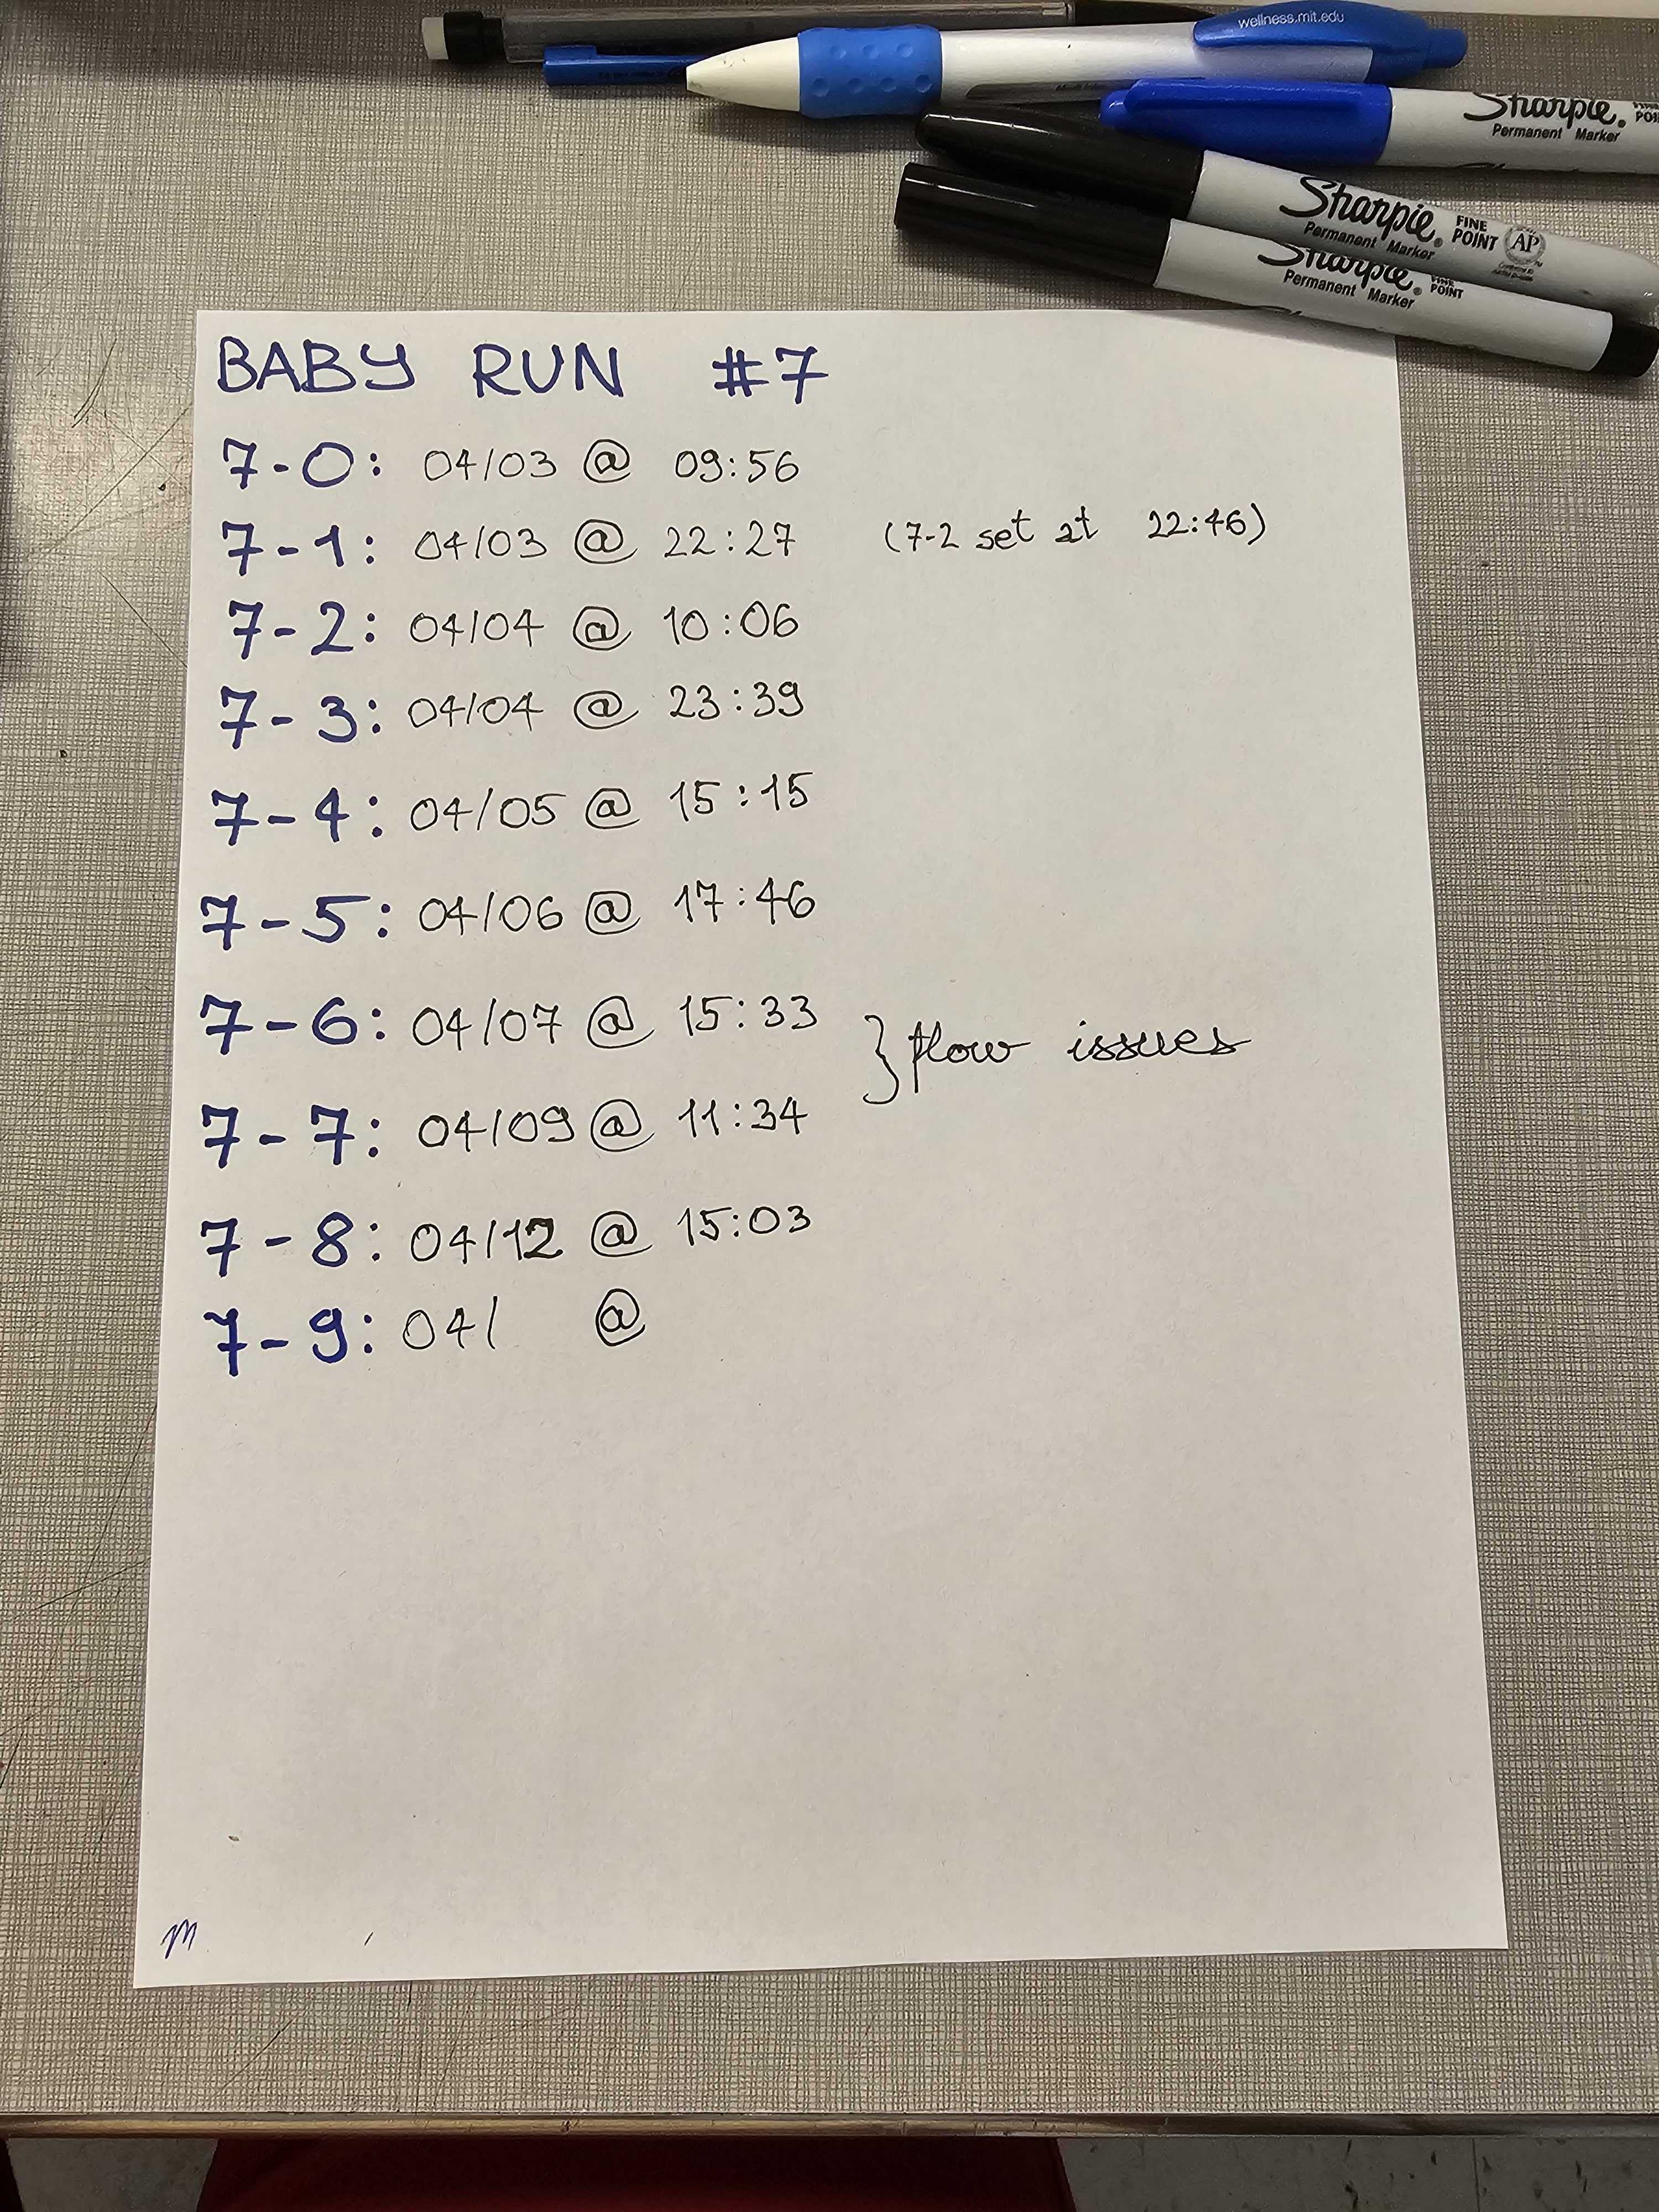 wellness.mit.edu
Sharpie.
Permanent Marker
Sharpie. FINE POINT AP
Permanent Marker
Sharpie. FINE POINT
Permanent Marker
BABY RUN #7
7-0: 04/03 @ 09:56
7-1: 04/03 @ 22:27 (7-2 set at 22:46)
7-2: 04/04 @ 10:06
7-3: 04/04 @ 23:39
7-4: 04/05 @ 15:15
7-5: 04/06 @ 17:46
7-6: 04/07 @ 15:33
} flow issues
7-7: 04/09 @ 11:34
7-8: 04/12 @ 15:03
7-9: 04/ @
m